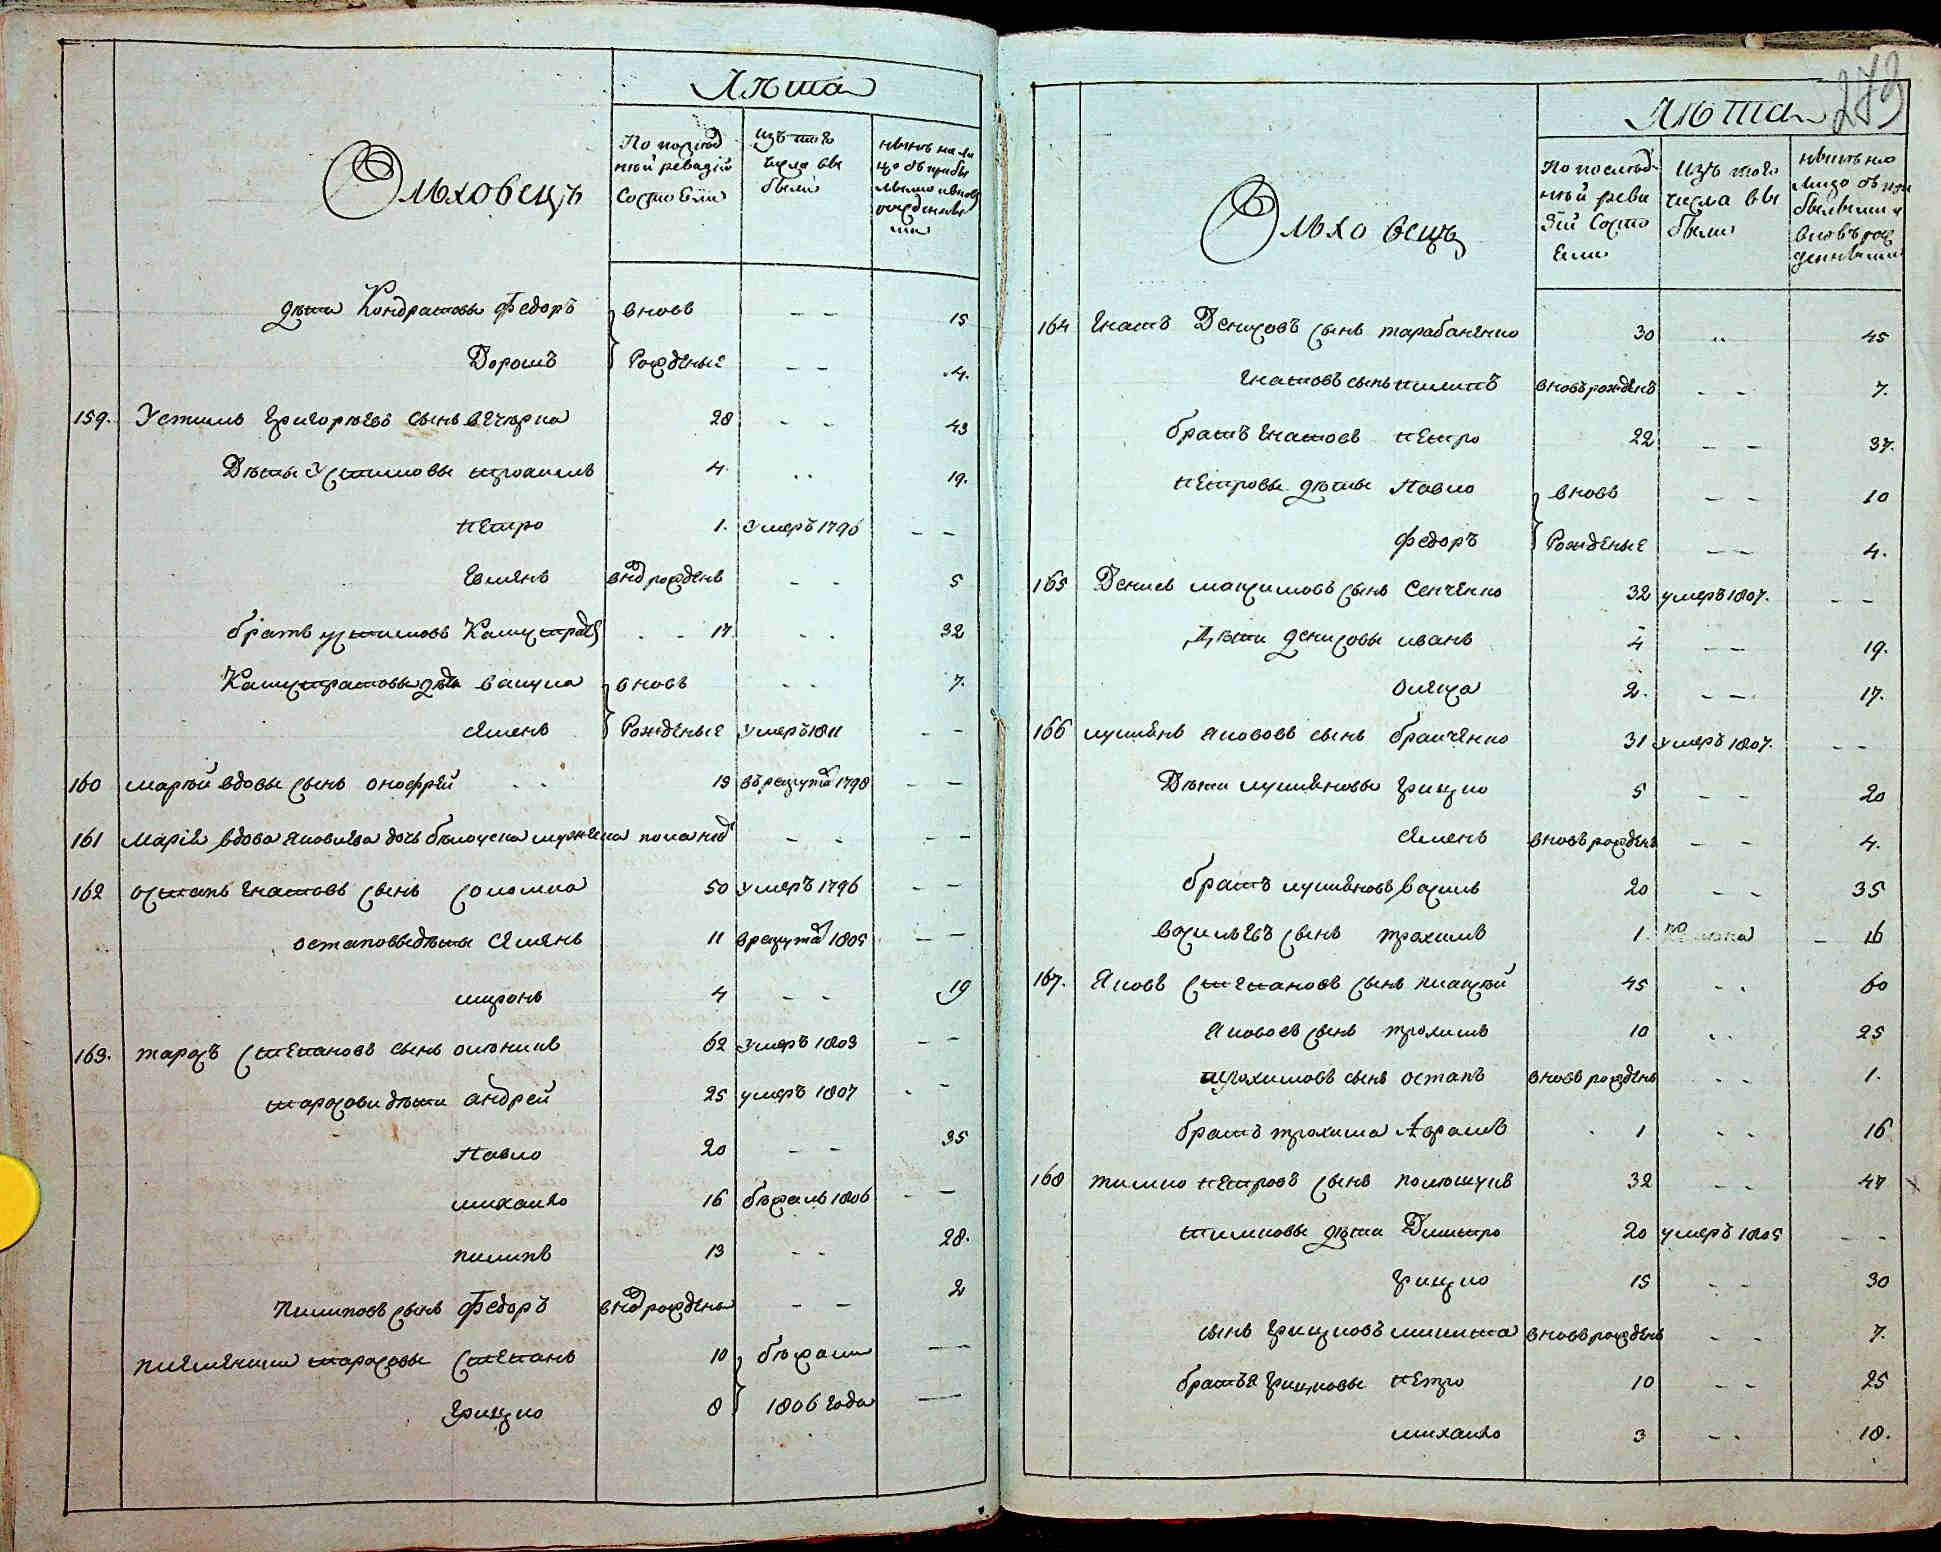 Лѣта
Ольховецъ
По послѣд
ней ревизіи
состояли
Изъ того
числа вы
были
дѣти Кондратовы Федоръ вновь - - 15
Дорошъ рожденые - - 4.
159. Устимъ Григорьевъ сынъ вечѣрка 28 - - 43
Дѣты Устимовы трохимъ 4. - - 19.
Петро 1. Умеръ 1796 - -
Евменъ внов рожденъ - - 5
братъ устимовъ Калистратъ 17 - - 32
Калистратовы дѣти васила вновь - - 7.
Семенъ рожденые умеръ 1811 - -
160 марѣи вдовы сынъ онофрей 19 въ рекруты 1798 - -
161 Маріи вдова Яковлева дочь - - - -
162 остапъ Гнатовъ сынъ соломка 50 умеръ 1796 - -
остаповыдѣты Семенъ 11 в рекруты 1805 - -
миронъ 4 - - 19
163. тарасъ степановъ сынъ олѣникъ 62 умеръ 1803 - -
тарасови дѣти андрей 25 умеръ 1807 - -
Павло 20 - - 35
михайло 16 бѣжалъ 1806 - -
пилипъ 13 - - 28.
Пилиповъ сынъ Федоръ внов рожденъ - - 2
племеники тарасовы степанъ 10 бѣжали - -
грицко 8 1806 года -
273
Лѣта
Ольховецъ
По послѣд
ней реви
зіи состо
яли
Изъ того
числа вы
были
164 Гнатъ Денисовъ сынъ тарабаненко 30 .. 45
Гнатовъ сынъ пилипъ вновь рожденъ - - 7.
братъ Гнатовъ Петро 22 - - 37.
Петровы дѣты Павло вновь - - 10
Федоръ рожденые - - 4.
165 Денисъ максимовъ сынъ Сенченко 32 умеръ 1807. - -
Дѣти денисовы иванъ 4 - - 19.
олекса 2. - - 17.
166 лукянъ Яковъ сынъ 31 умеръ 1807. - -
Дѣти лукяновы грицко 5 - - 20
Семенъ вновь рожденъ - - 4.
братъ лукяновъ василь 20 - - 35
василевъ сынъ трохимъ 1 - 16
167. Яковъ степановъ сынъ 45 - - 60
Яковъ сынъ трохимъ 10 - - 25
трохимовъ сынъ остапъ вновь рожденъ - - 1.
братъ трохима Аврамъ 1 - - 16
168 тимко Петровъ сынъ 32 - - 47
тимковы дѣти Дмитро 20 умеръ 1805 - -
грицко 15 - - 30
сынъ грицковъ микита вновь рожденъ - - 7.
братья грицковы Петро 10 - - 25
михайло 3 - - 18.